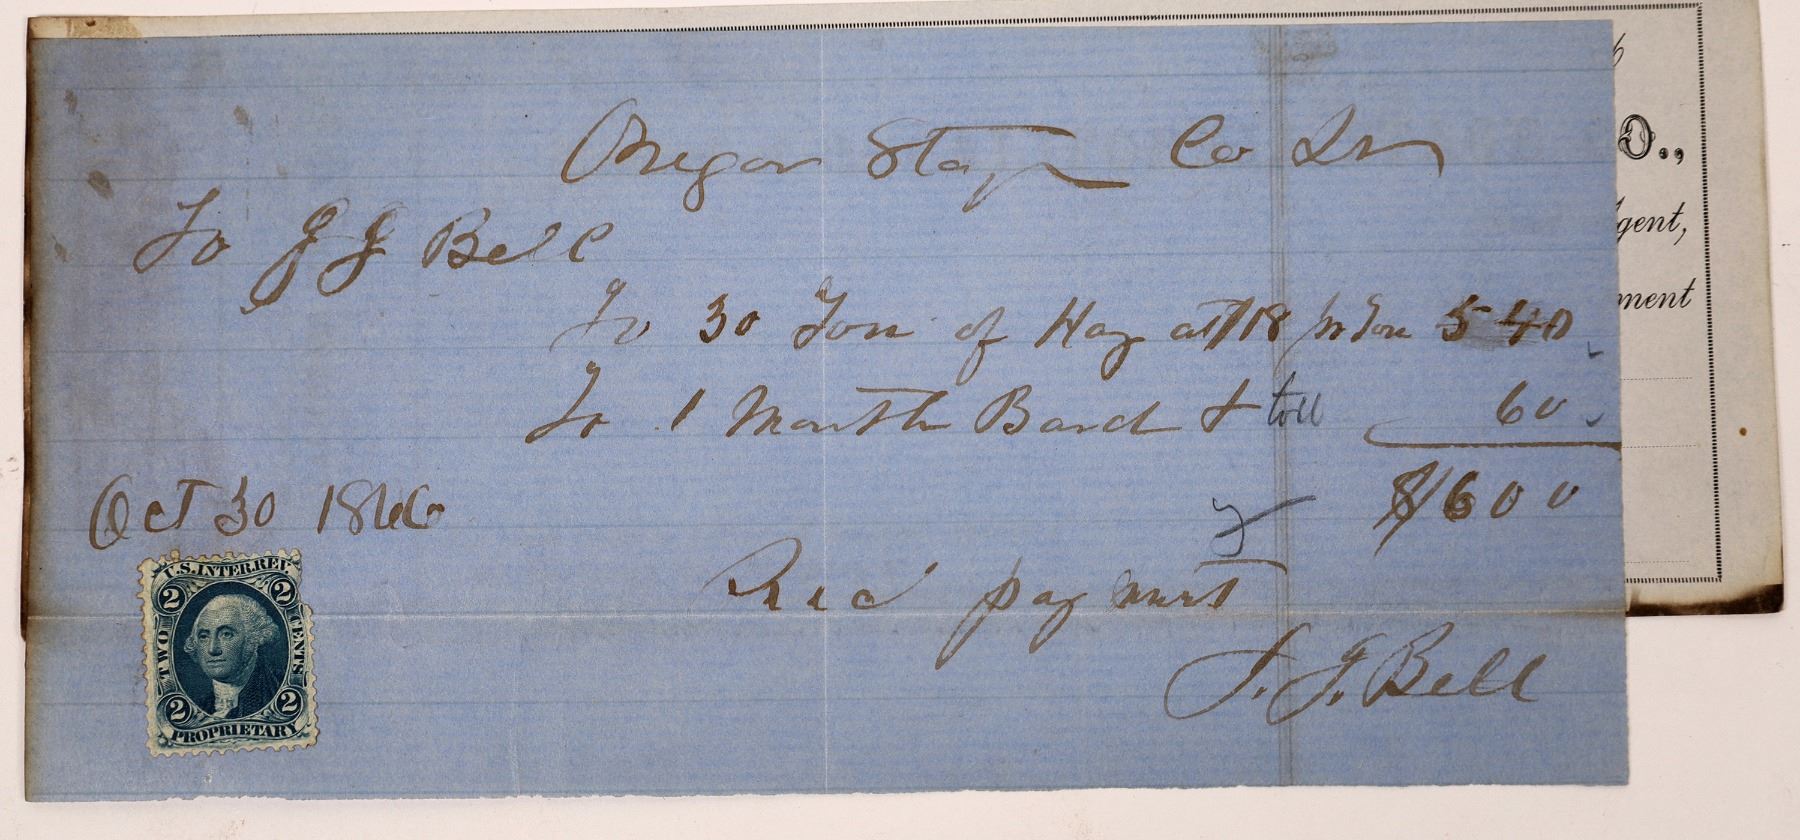 Oregon Stage Co Dr
To J J Bell
To 30 Ton of Hay at $18 pr Ton 540
To 1 Month Bord & toll 60
$600
Oct 30 1866
Recd payment
J. J. Bell
U.S. INTER. REV.
2 2
TWO CENTS
2 2
PROPRIETARY
O.,
gent,
ment